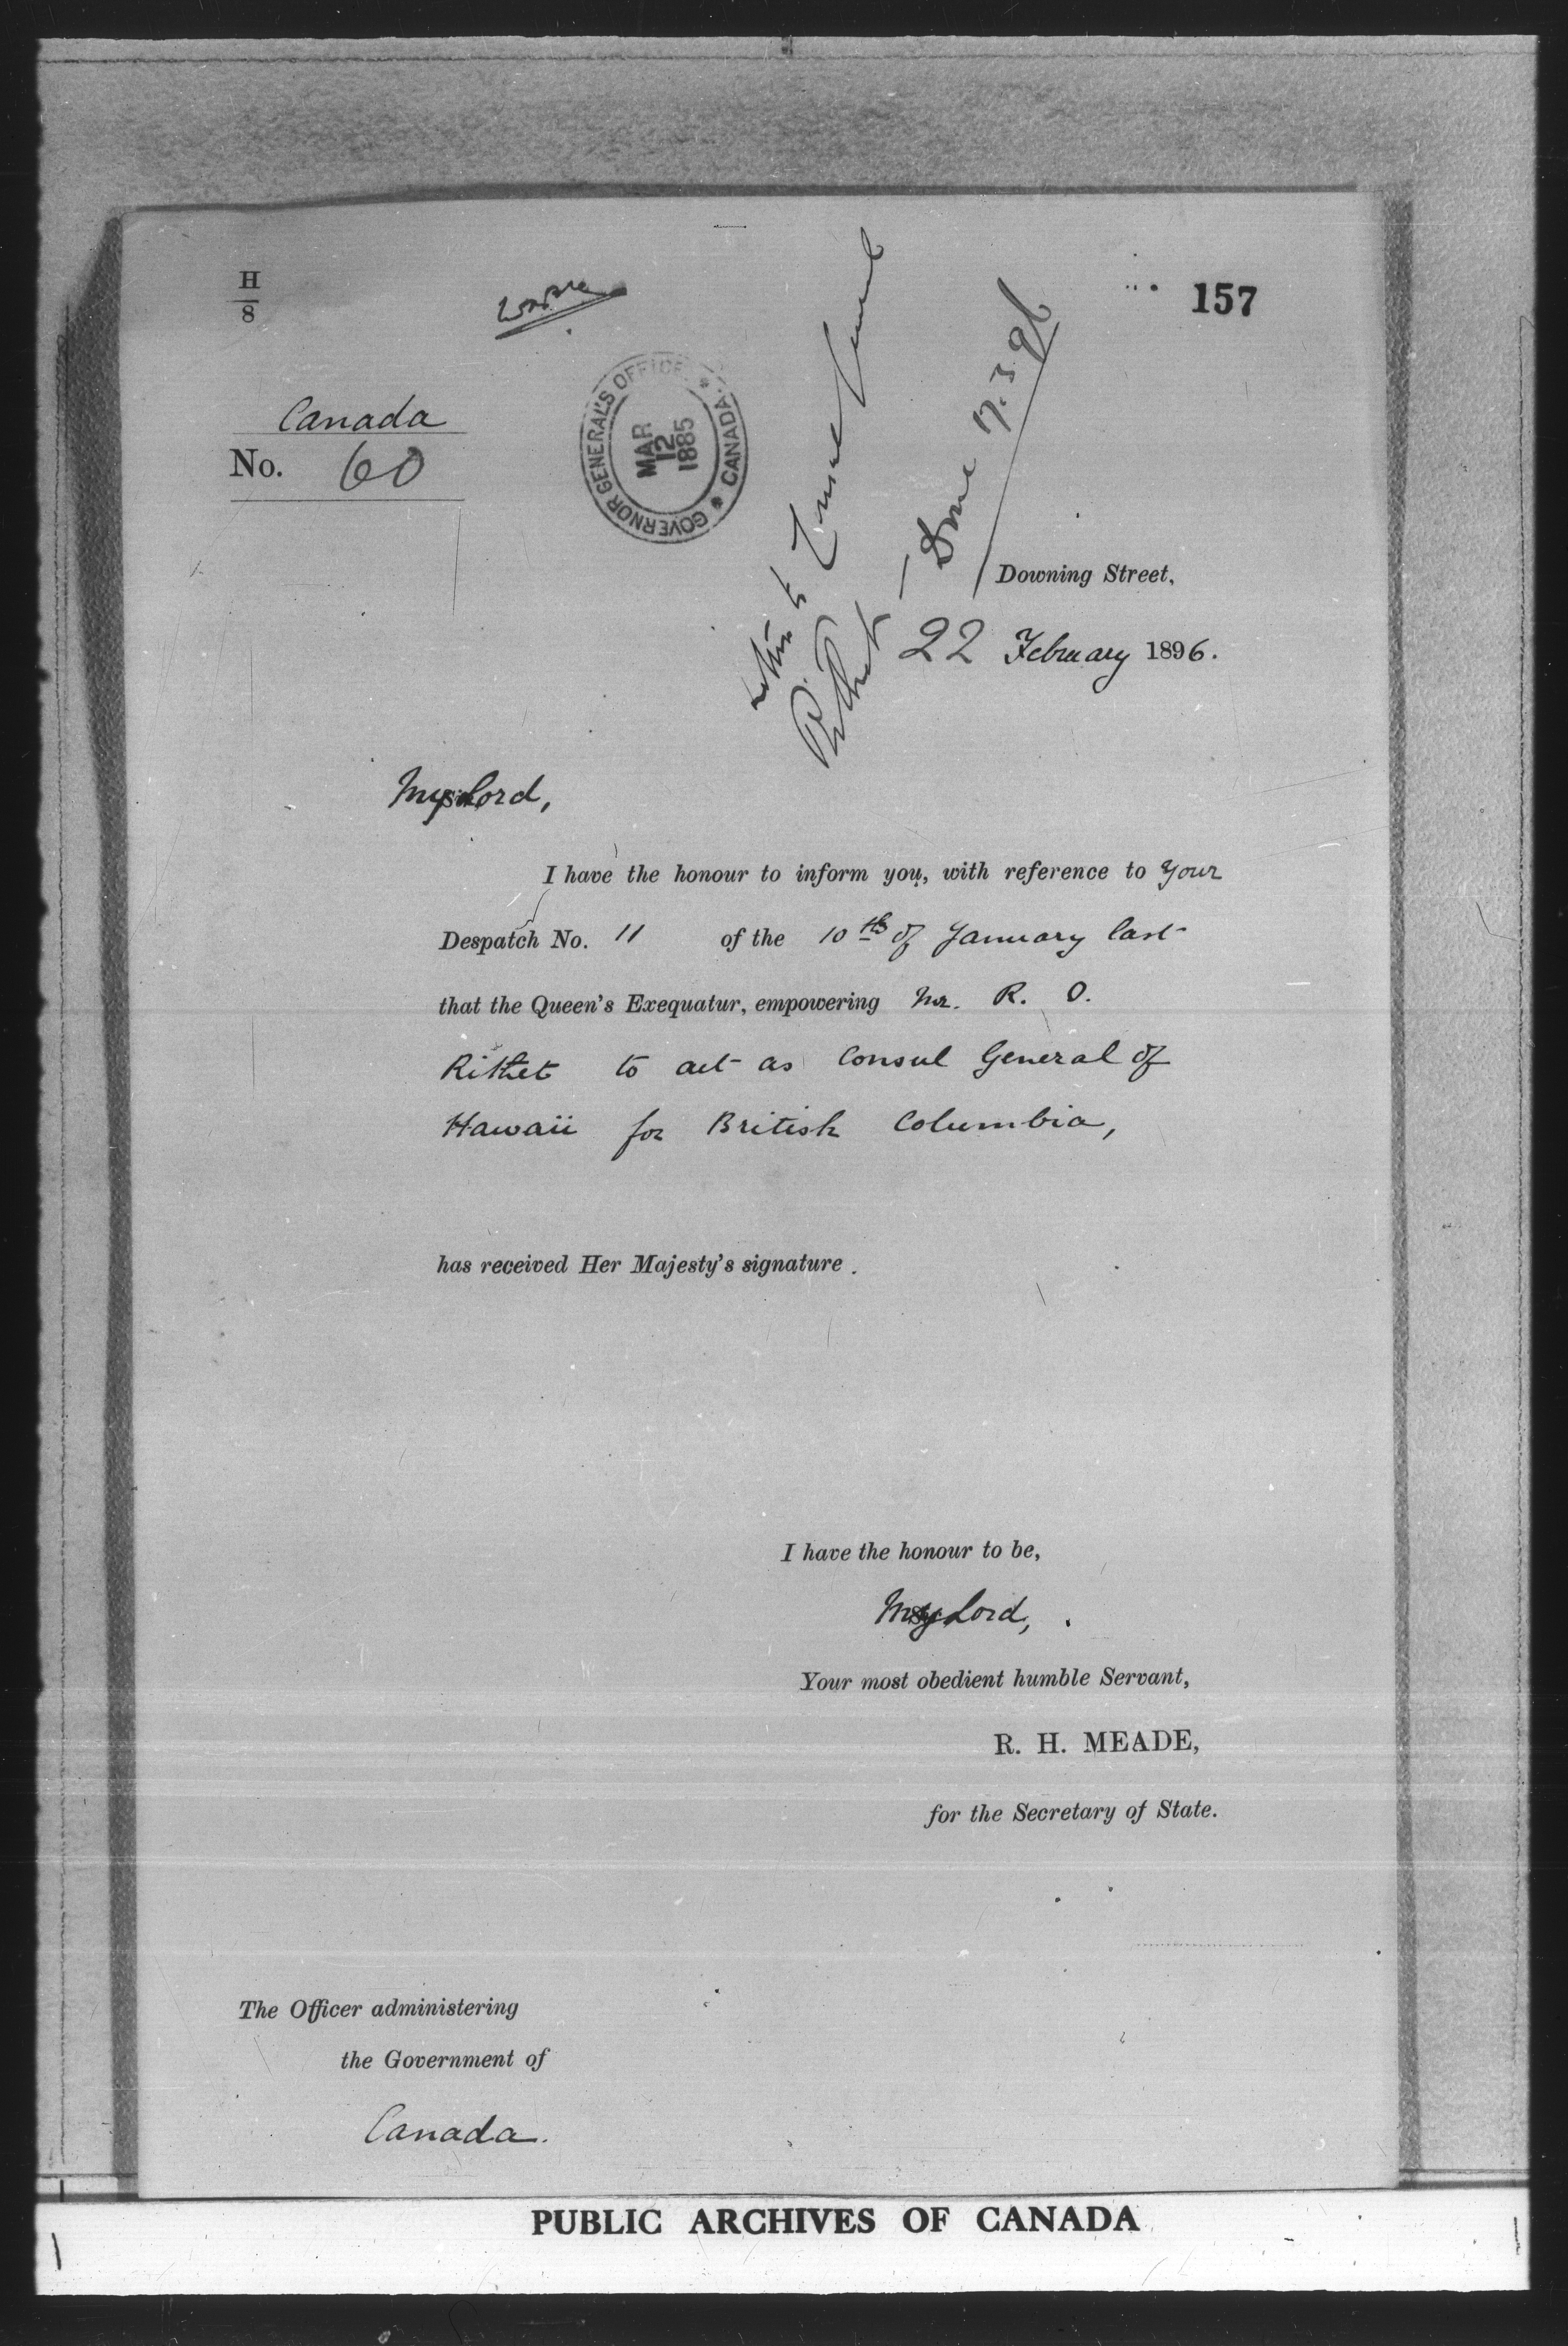 H
8
157
Canada
No. 60
GOVERNOR GENERAL'S OFFICE * CANADA. *
MAR
12
1885
to Consul General
Rithet — Done 17.3.96
Downing Street,
22 February 1896.
My Lord,
I have the honour to inform you, with reference to your
Despatch No. 11 of the 10th of January last
that the Queen's Exequatur, empowering Mr. R. O.
Rithet to act as Consul General of
Hawaii for British Columbia,
has received Her Majesty's signature.
I have the honour to be,
My Lord,
Your most obedient humble Servant,
R. H. MEADE,
for the Secretary of State.
The Officer administering
the Government of
Canada.
PUBLIC ARCHIVES OF CANADA